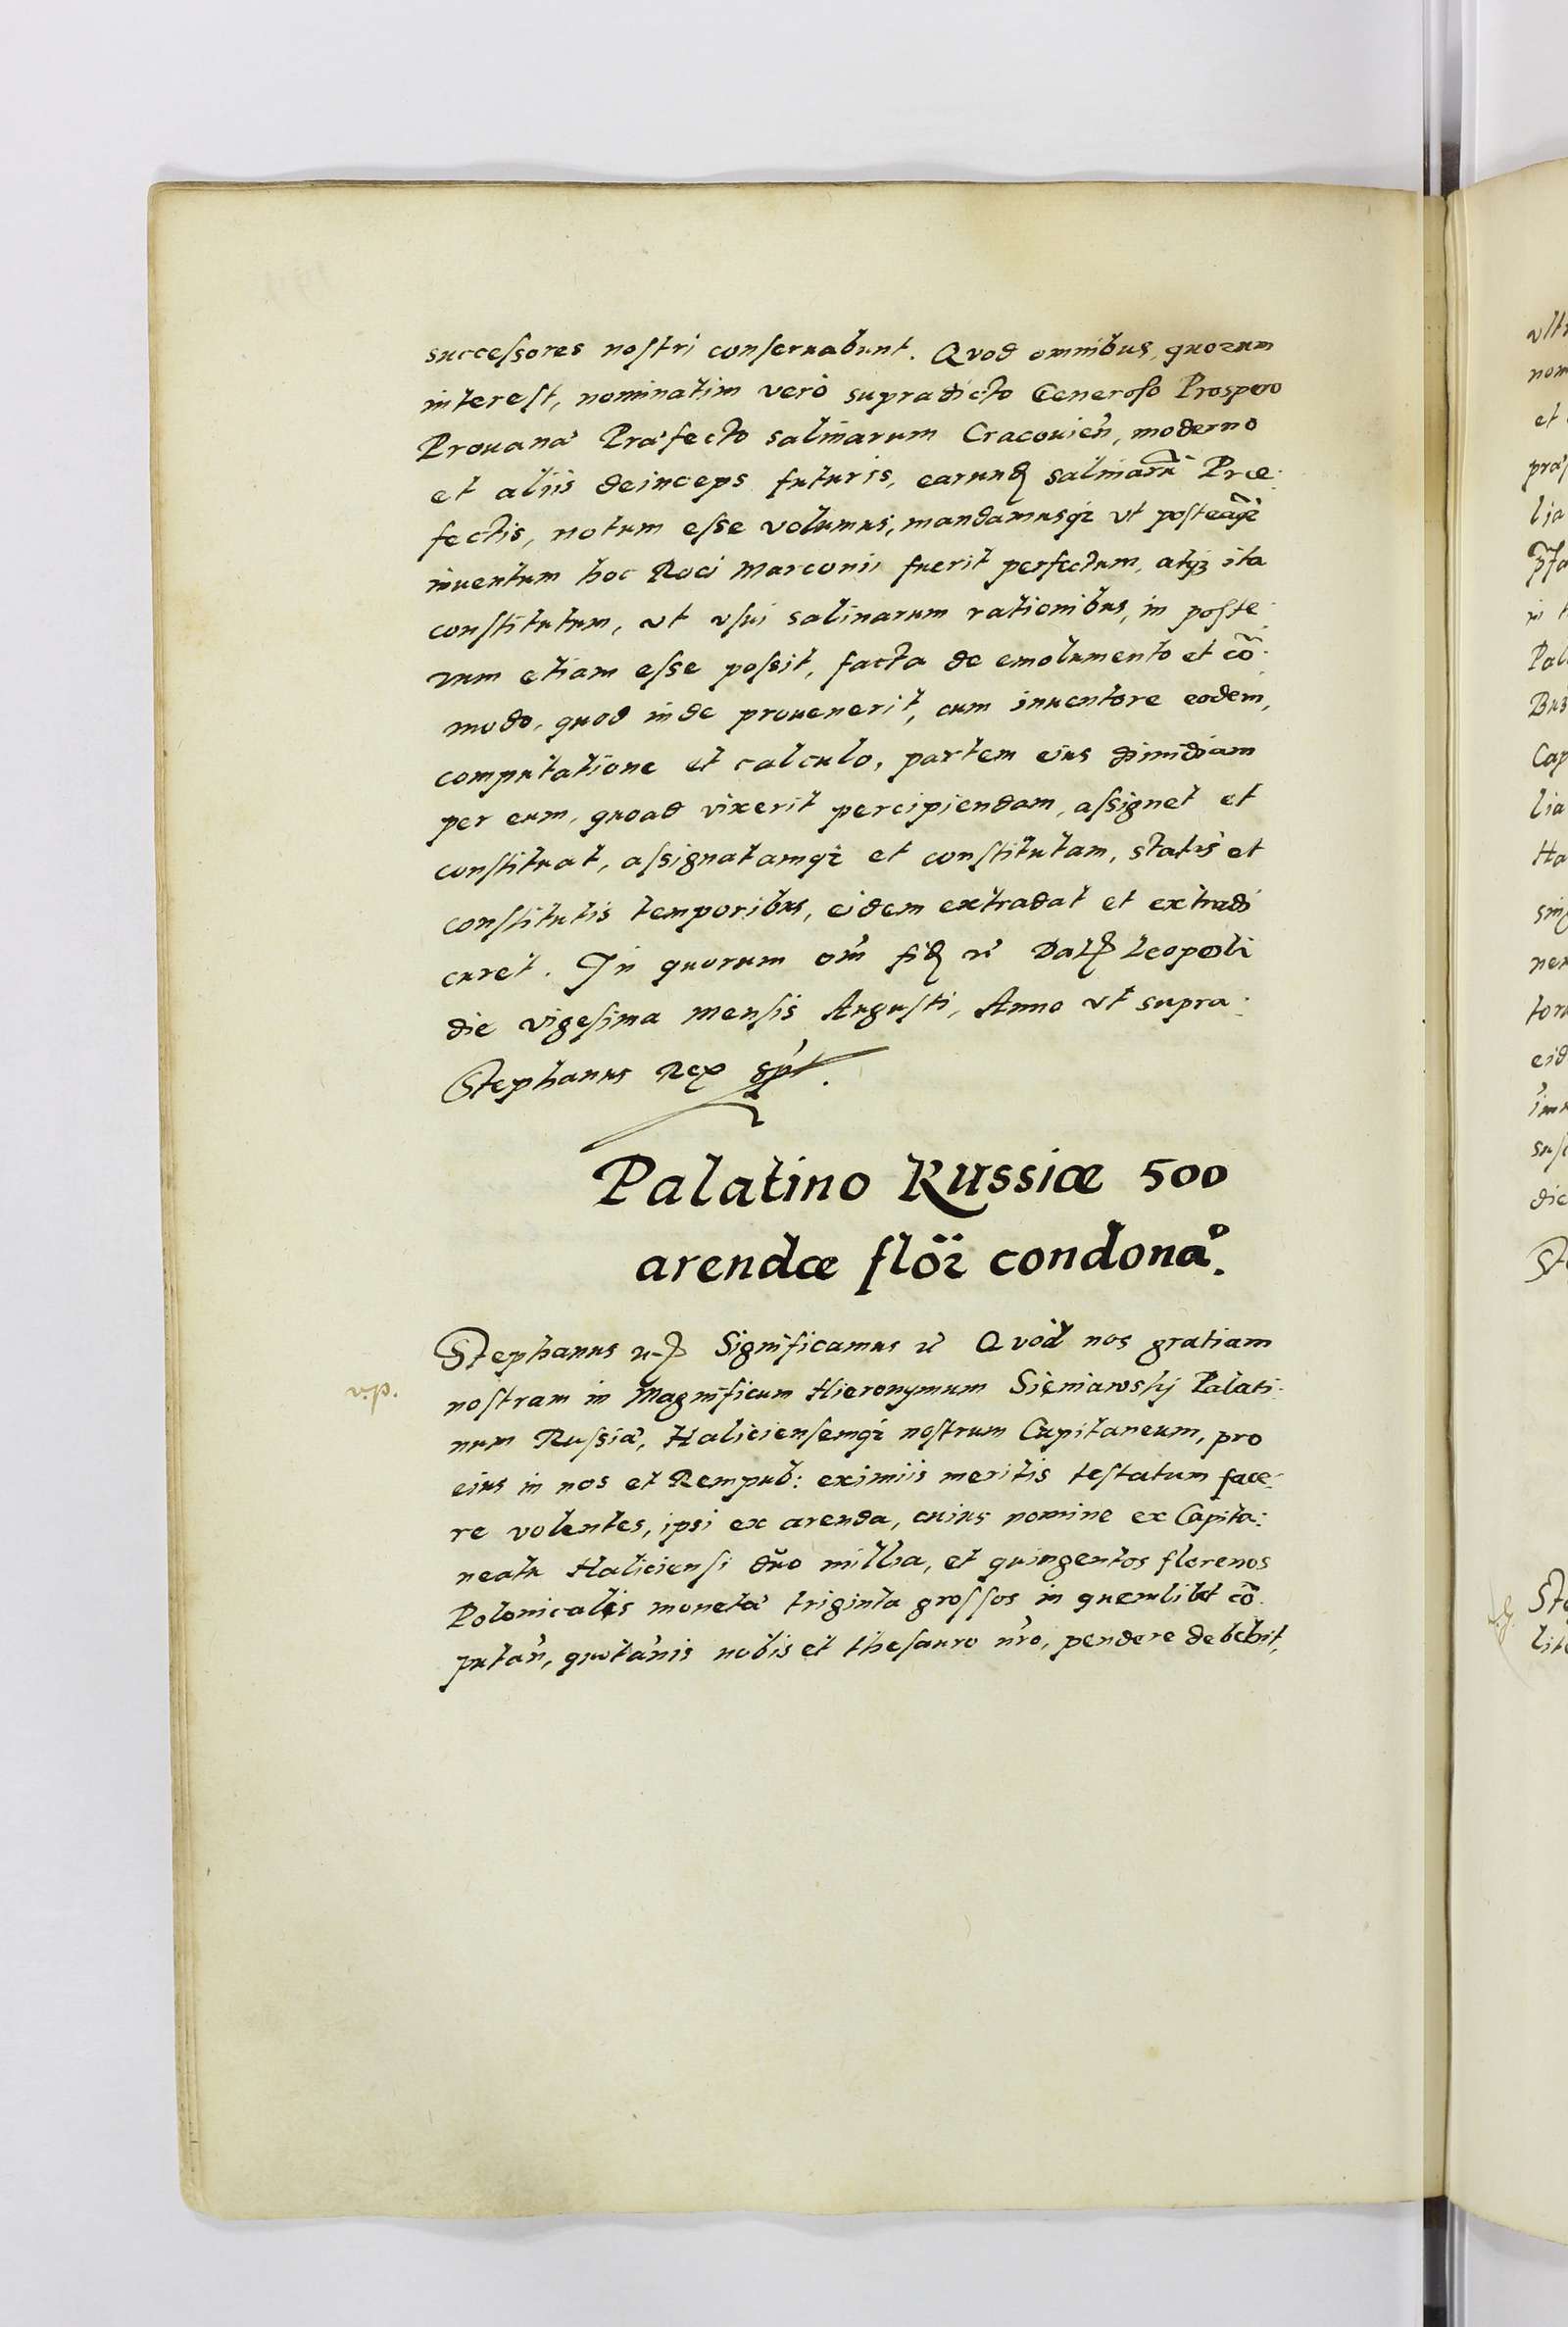 successores nostri conseruabunt. Quod omnibus, quorum
interest, nominatim verò supradicto Generoso Prospero
Prouanæ Præfecto salinarum Cracouień, moderno
et aliis deinceps futuris, earund salinarũ Præ-
fectis, notum esse volumus, mandamusq; vt posteaq̃
inuentum hoc Roci Marconii fuerit perfectum, atq; ita
constitutum, vt vsui salinarum rationibus, in poste-
rum etiam esse possit, facta de emolumento et cõ-
modo, quod inde prouenerit, cum inuentore eodem,
computatione et calculo, partem eius dimidiam
per eum, quoad vixerit percipiendam, assignet et
constituat, assignatamq; et constitutam, statis et
constitutis temporibus, eidem extradat et extradi
curet. In quorum om̃ fid Dat Leopoli
die vigesima mensis Augusti, Anno vt supra.
Stephanus Rex
Palatino Russiæ 500
arendæ flor condona°.
Stephanus Significamus Quod nos gratiam
nostram in Magnificum Hieronymum Sieniawskij Palati-
num Russiæ, Haliciensemq; nostrum Capitaneum, pro
eius in nos et Rempub: eximiis meritis testatum face-
re volentes, ipsi ex arenda, cuius nomine ex Capita:
neatu Haliciensi duo millia, et quingentos florenos
Polonicales monetæ triginta grossos in quemlibet cõ-
putań, quotannis nobis et thesauro nr̃o, pendere debebit,